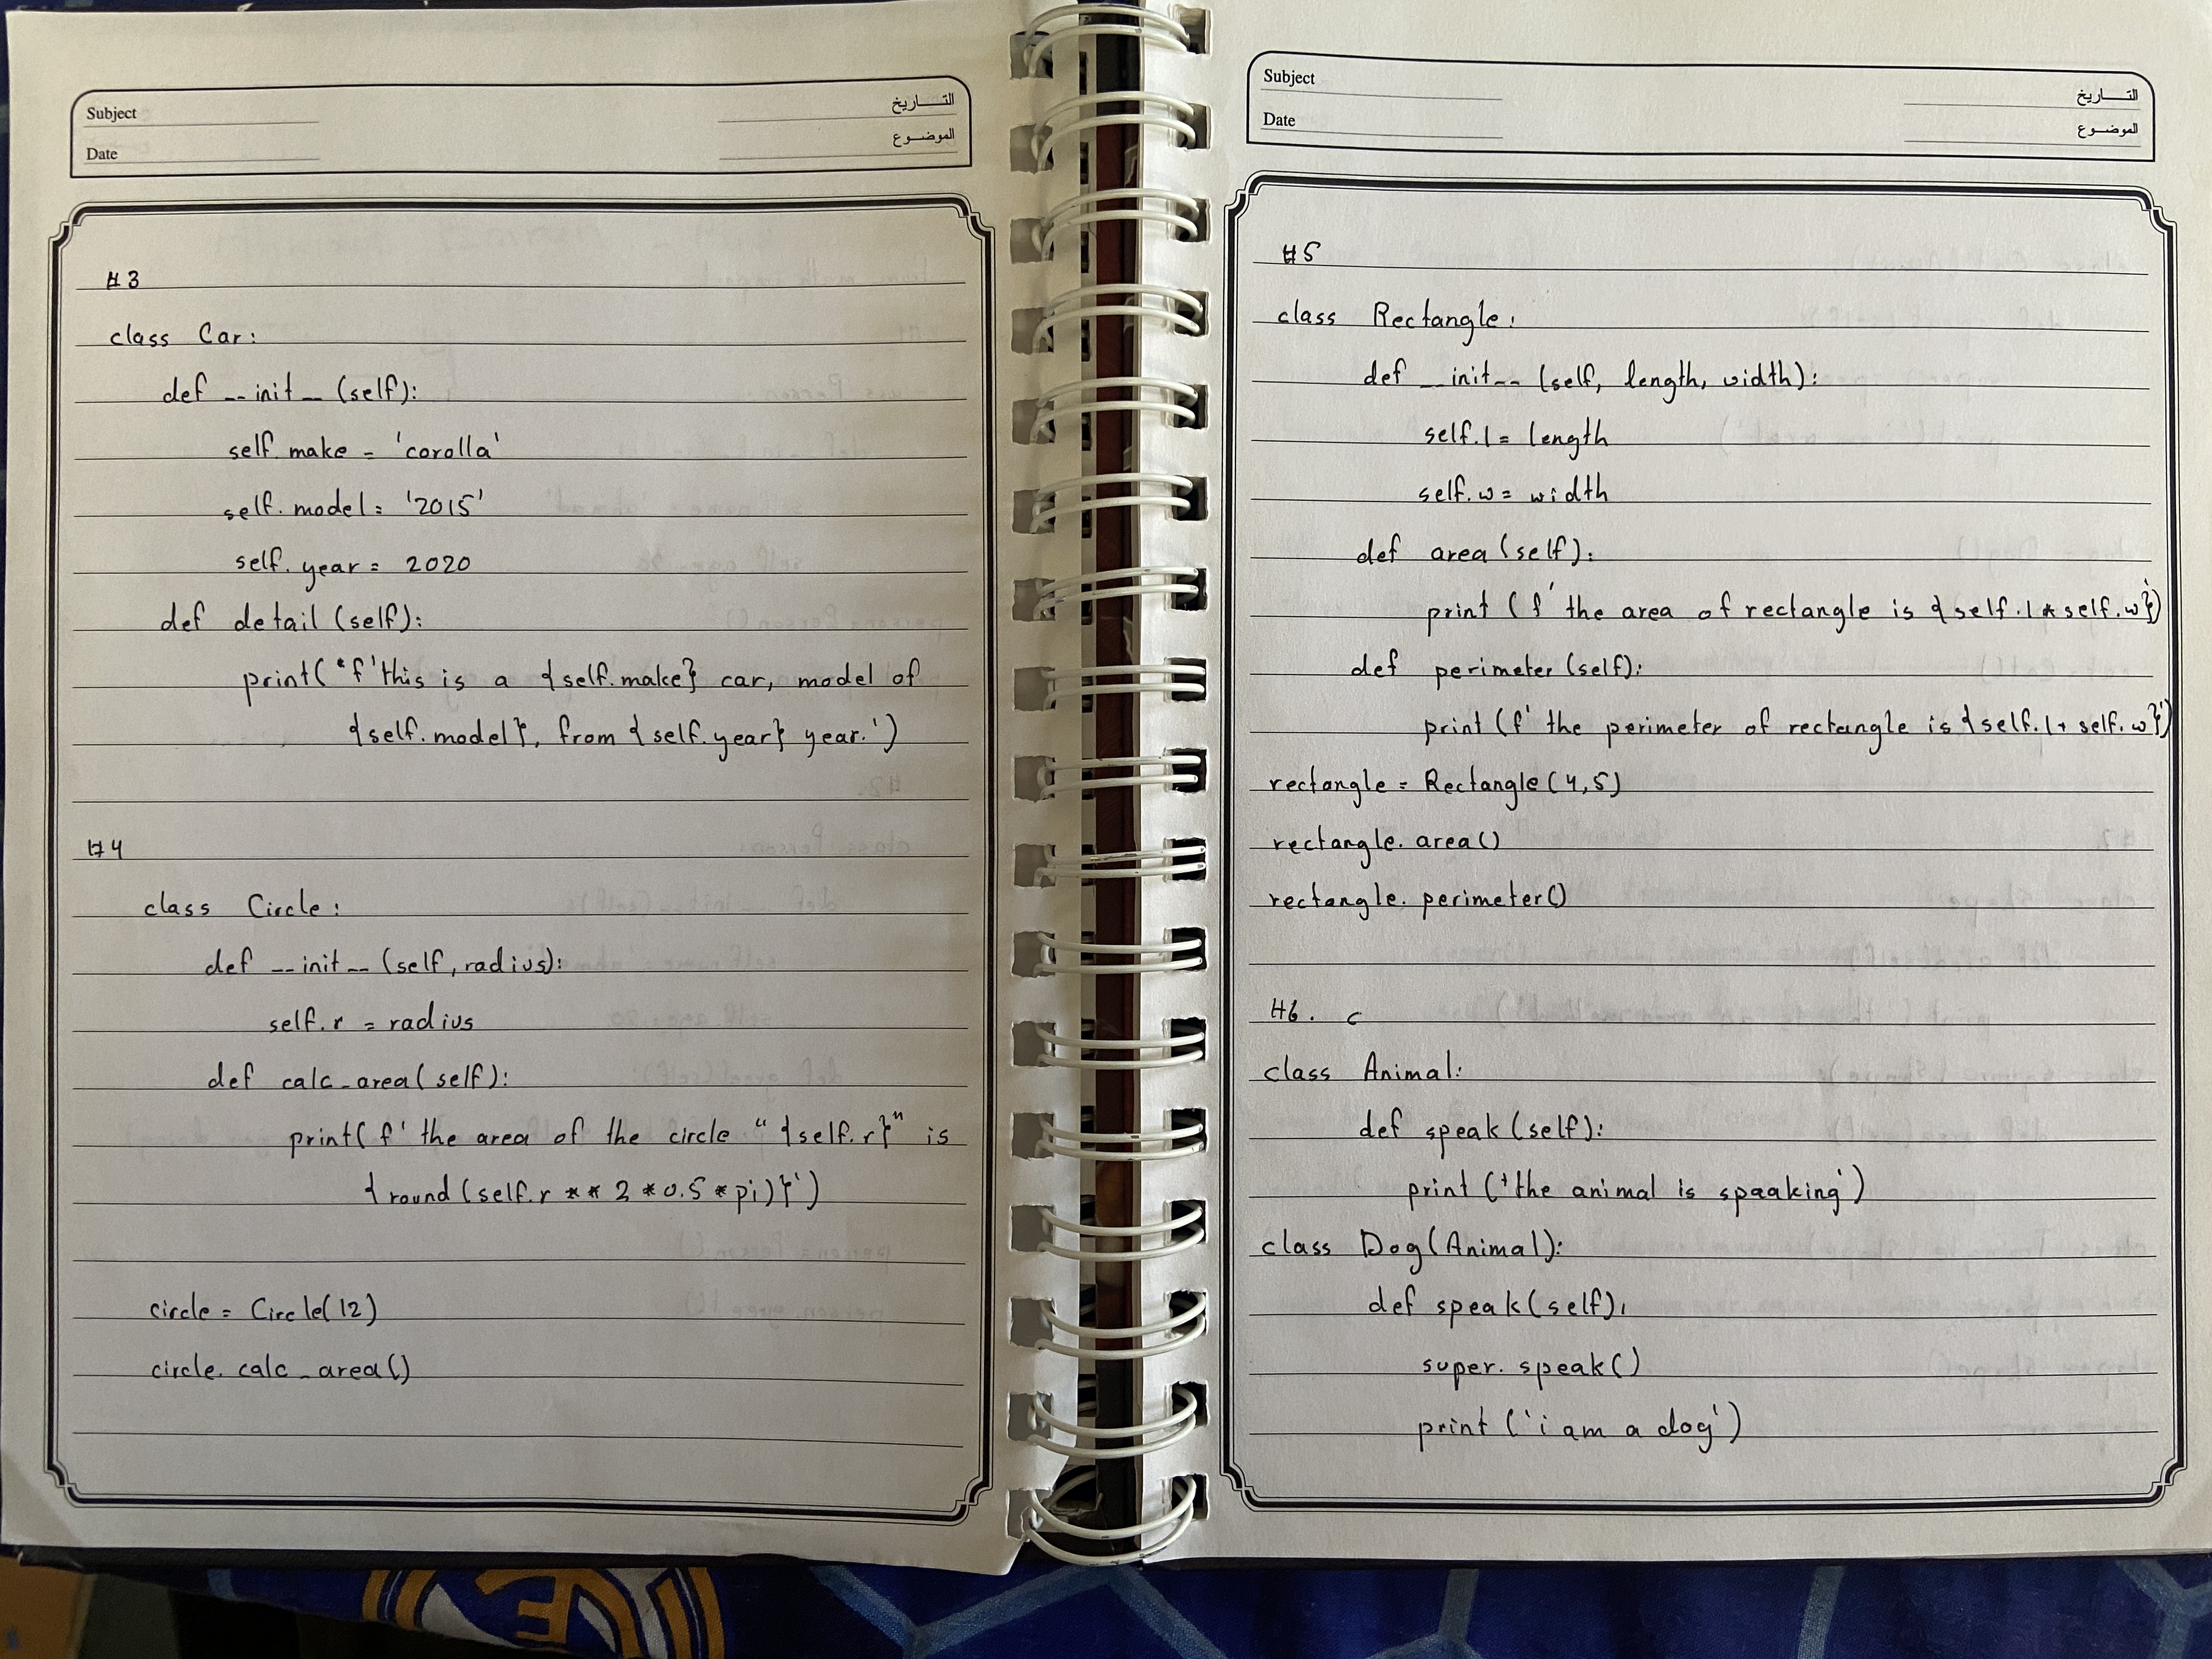 Subject
Date
التــاريخ
الموضــوع
#3
class Car:
def __init__(self):
self.make = 'corolla'
self.model = '2015'
self.year = 2020
def detail(self):
print(f'this is a {self.make} car, model of
{self.model}, from {self.year} year.')
#4
class Circle:
def __init__(self, radius):
self.r = radius
def calc_area(self):
print(f' the area of the circle "{self.r}" is
{round(self.r ** 2 * 0.5 * pi)}')
circle = Circle(12)
circle.calc_area()
Subject
Date
التــاريخ
الموضــوع
#5
class Rectangle:
def __init__(self, length, width):
self.l = length
self.w = width
def area(self):
print(f' the area of rectangle is {self.l * self.w}')
def perimeter(self):
print(f' the perimeter of rectangle is {self.l + self.w}')
rectangle = Rectangle(4,5)
rectangle.area()
rectangle.perimeter()
#6. c
class Animal:
def speak(self):
print('the animal is spaaking')
class Dog(Animal):
def speak(self),
super.speak()
print('i am a dog')